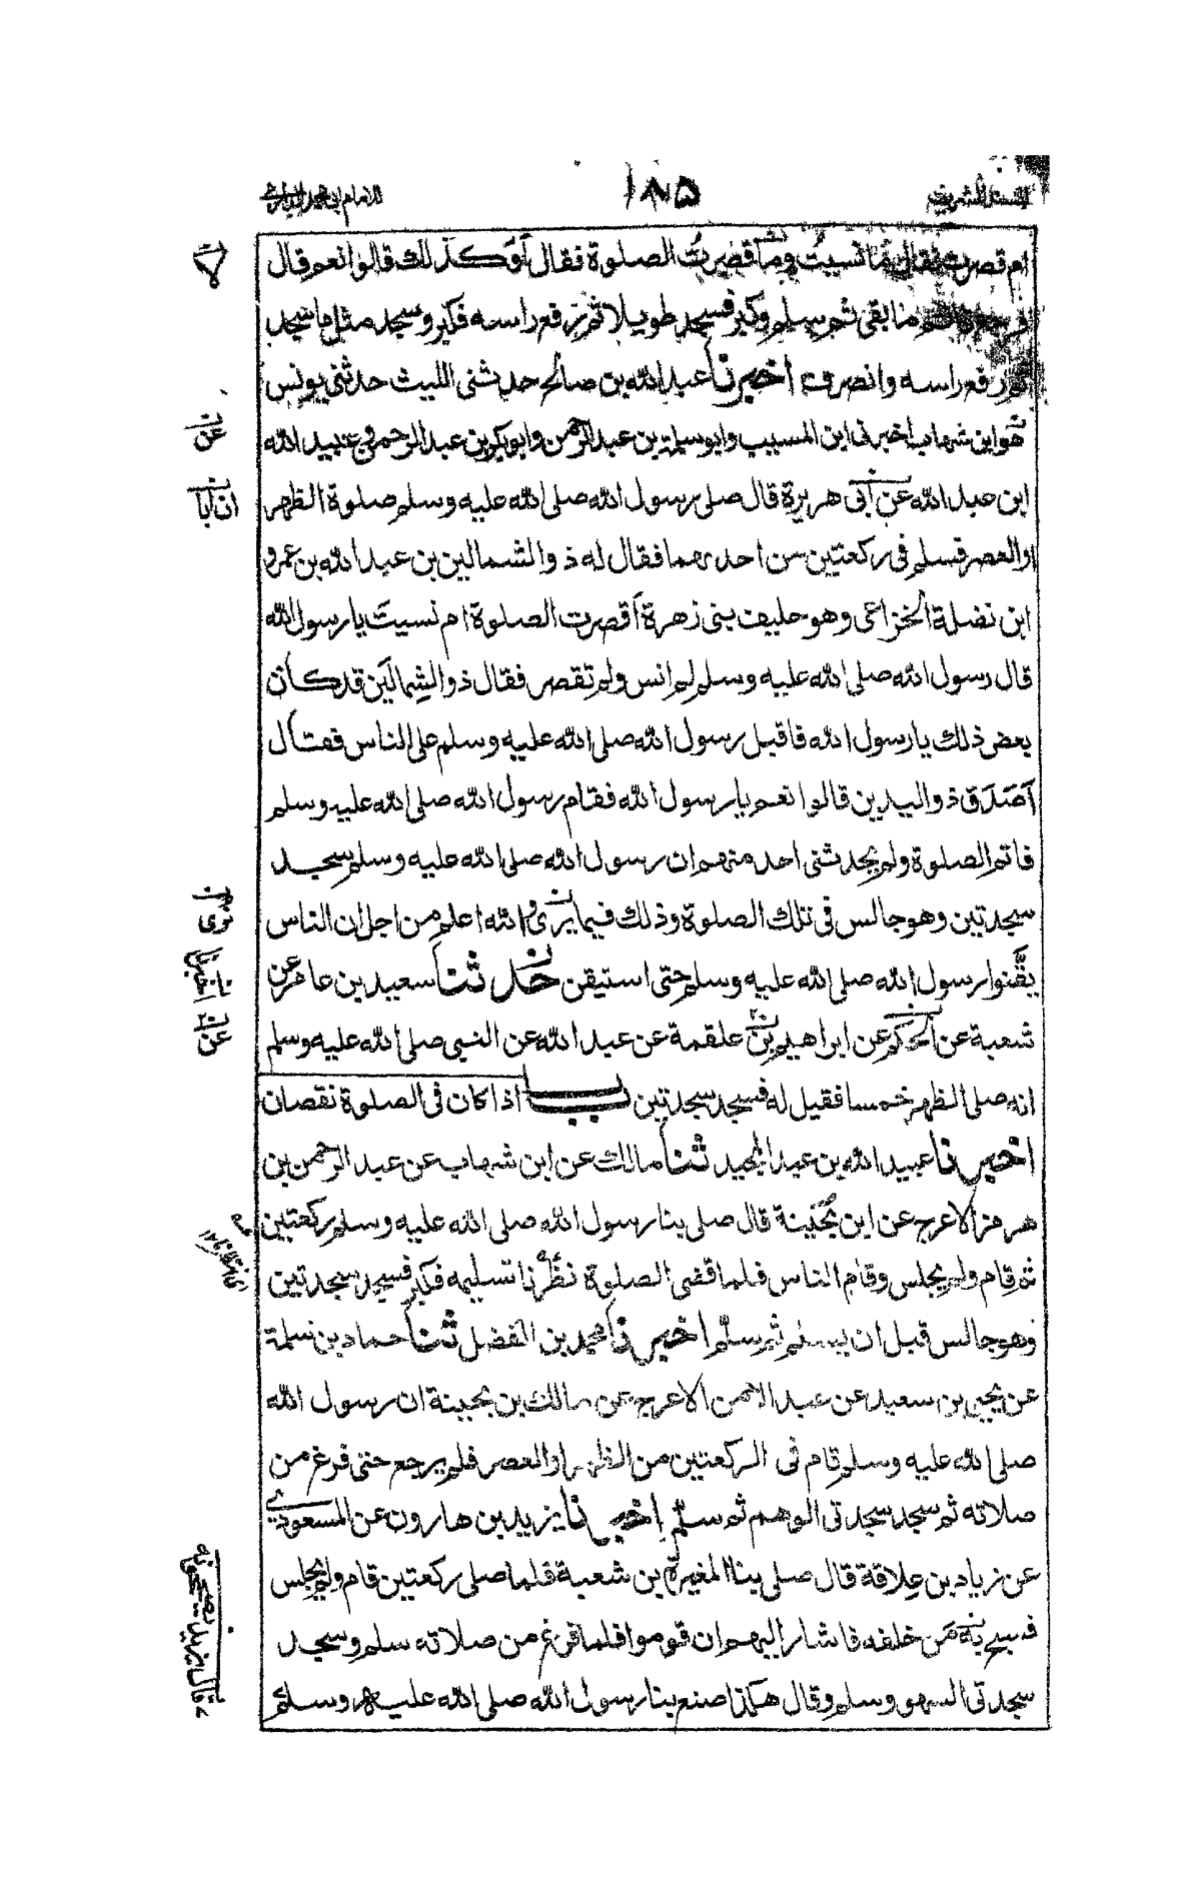 المسند الشريف ١٨٥ للامام ابي محمد الدارمي
ام قصرت فقال ما نسيت وما قصرت الصلوة فقال أَوَكذلك قالوا نعم قال
ما بقى ثم سلم وكبر فسجد طويلا ثم رفع راسه فكبر وسجد مثل ما سجد
ثم رفع راسه وانصرف اخبرنا عبد الله بن صالح حدثنى الليث حدثنى يونس
ابن شهاب اخبرنى ابن المسيب وابو سلمة بن عبد الرحمن وابو بكر بن عبد الرحمن وعبيد الله
ابن عبد الله عن أبى هريرة قال صلى رسول الله صلى الله عليه وسلم صلوة الظهر
او العصر فسلم فى ركعتين من احدىهما فقال له ذو الشمالين بن عبد الله بن عمرو
ابن نضلة الخزاعى وهو حليف بنى زهرة أَقصرت الصلوة ام نسيتَ يا رسول الله
قال رسول الله صلى الله عليه وسلم لم انس ولم تقصر فقال ذو الشِمالَين قد كان
بعض ذلك يا رسول الله فاقبل رسول الله صلى الله عليه وسلم على الناس فقال
أَصَدَق ذو اليدين قالوا نعم يا رسول الله فقام رسول الله صلى الله عليه وسلم
فاتم الصلوة ولم يحدثنى احد منهم ان رسول الله صلى الله عليه وسلم سجد
سجدتين وهو جالس فى تلك الصلوة وذلك فيما يرى والله اعلم من اجل ان الناس
يقّنوا رسول الله صلى الله عليه وسلم حتى استيقن حدثنا سعيد بن عامر عن
شعبة عن الحكم عن ابراهيم بن علقمة عن عبد الله عن النبى صلى الله عليه وسلم
انه صلى الظهر خمسا فقيل له فسجد سجدتين باب اذا كان فى الصلوة نقصان
اخبرنا عبيد الله بن عبد المجيد ثنا مالك عن ابن شهاب عن عبد الرحمن بن
هرمز الاعرج عن ابن بُحَينة قال صلى بنا رسول الله صلى الله عليه وسلم ركعتين
ثم قام ولم يجلس وقام الناس فلما قضى الصلوة نظرنا تسليمه فكبر فسجد سجدتين
وهو جالس قبل ان يسلم ثم سلّم اخبرنا محمد بن الفضل ثنا حماد بن سلمة
عن يحيى بن سعيد عن عبد الرحمن الاعرج عن مالك بن بحينة ان رسول الله
صلى الله عليه وسلم قام فى الركعتين من الظهر او العصر فلم يرجع حتى فرغ من
صلاته ثم سجد سجدتى الوهم ثم سلّم اخبرنا يزيد بن هارون عن المسعودي
عن زياد بن عِلاقة قال صلى بنا المغيرة بن شعبة فلما صلى ركعتين قام ولم يجلس
فسبح به مَن خلفه فاشار اليهم ان قوموا فلما فرغ من صلاته سلم وسجد
سجدتى السهو وسلم وقال هكذا صنع بنا رسول الله صلى الله عليه وسلم
عن
ان أبا
عن
قال يزيد يصححونه